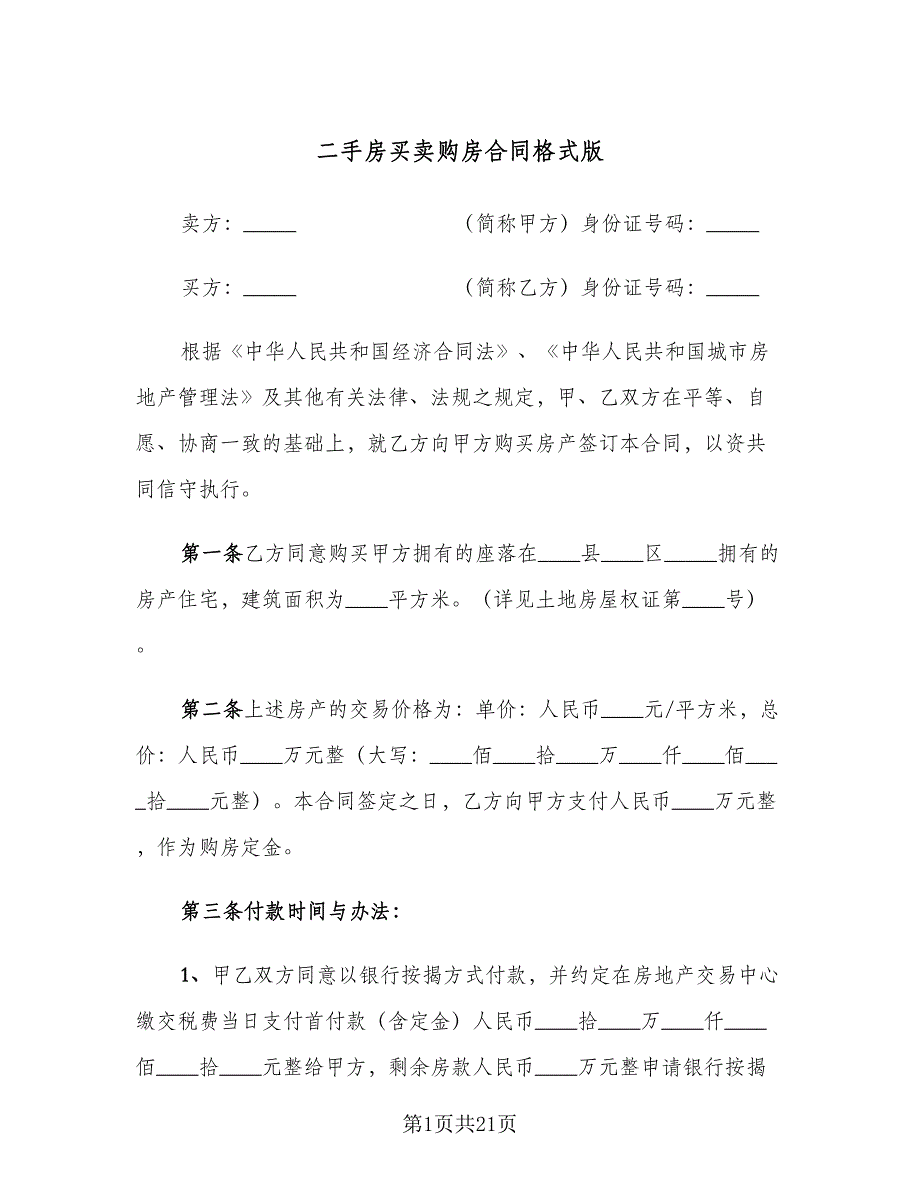 二手房买卖购房合同格式版
卖方：_____ （简称甲方）身份证号码：_____
买方：_____ （简称乙方）身份证号码：_____
根据《中华人民共和国经济合同法》、《中华人民共和国城市房
地产管理法》及其他有关法律、法规之规定，甲、乙双方在平等、自
愿、协商一致的基础上，就乙方向甲方购买房产签订本合同，以资共
同信守执行。
第一条乙方同意购买甲方拥有的座落在____县____区_____拥有的
房产住宅，建筑面积为____平方米。（详见土地房屋权证第____号）
。
第二条上述房产的交易价格为：单价：人民币____元/平方米，总
价：人民币____万元整（大写：____佰____拾____万____仟____佰___
_拾____元整）。本合同签定之日，乙方向甲方支付人民币____万元整
，作为购房定金。
第三条付款时间与办法：
1、甲乙双方同意以银行按揭方式付款，并约定在房地产交易中心
缴交税费当日支付首付款（含定金）人民币____拾____万____仟____
佰____拾____元整给甲方，剩余房款人民币____万元整申请银行按揭
第1页共21页